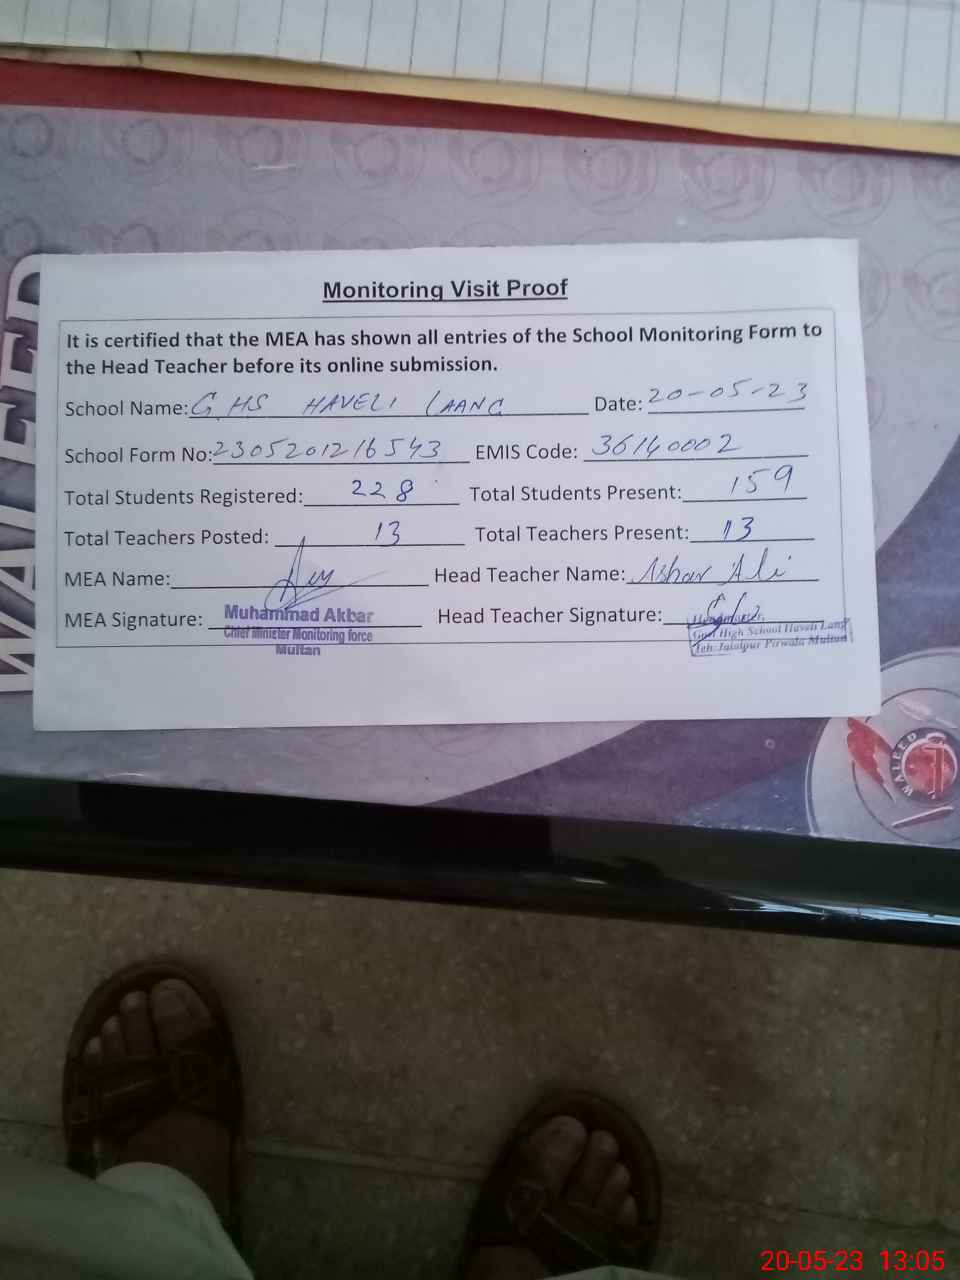 WALEED
Monitoring Visit Proof
It is certified that the MEA has shown all entries of the School Monitoring Form to
the Head Teacher before its online submission.
School Name: GHS HAVELI LAANG Date: 20-05-23
School Form No: 2305201216543 EMIS Code: 36140002
Total Students Registered: 228 Total Students Present: 159
Total Teachers Posted: 13 Total Teachers Present: 13
MEA Name: Head Teacher Name: Ali
MEA Signature: Head Teacher Signature:
Muhammad Akbar
Chief Minister Monitoring force
Multan
Govt High School Haveli Lang
Teh: Jalalpur Pirwala Multan
WALEED
20-05-23 13:05